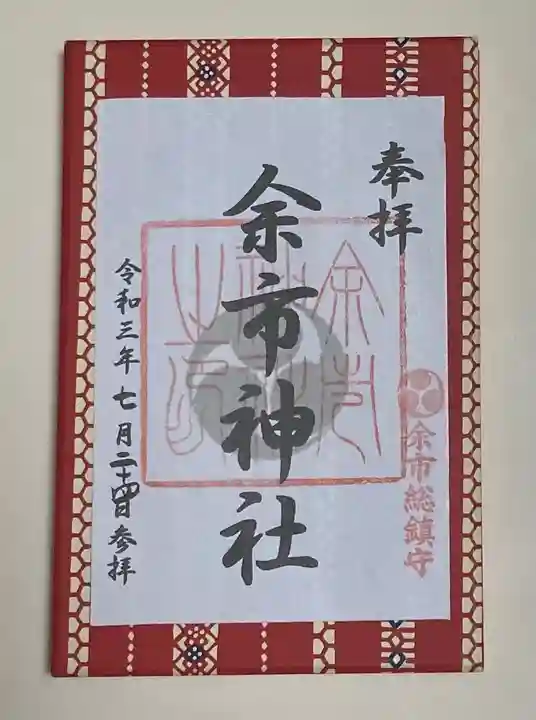 奉拝
余市総鎮守
余市神社
令和三年七月二十四日参拝